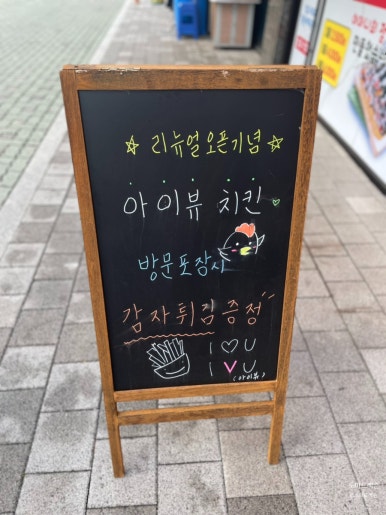 ☆ 리뉴얼오픈기념 ☆
아이뷰 치킨
방문포장시
감자튀김증정
I ♡ U
I V U
(아이뷰)